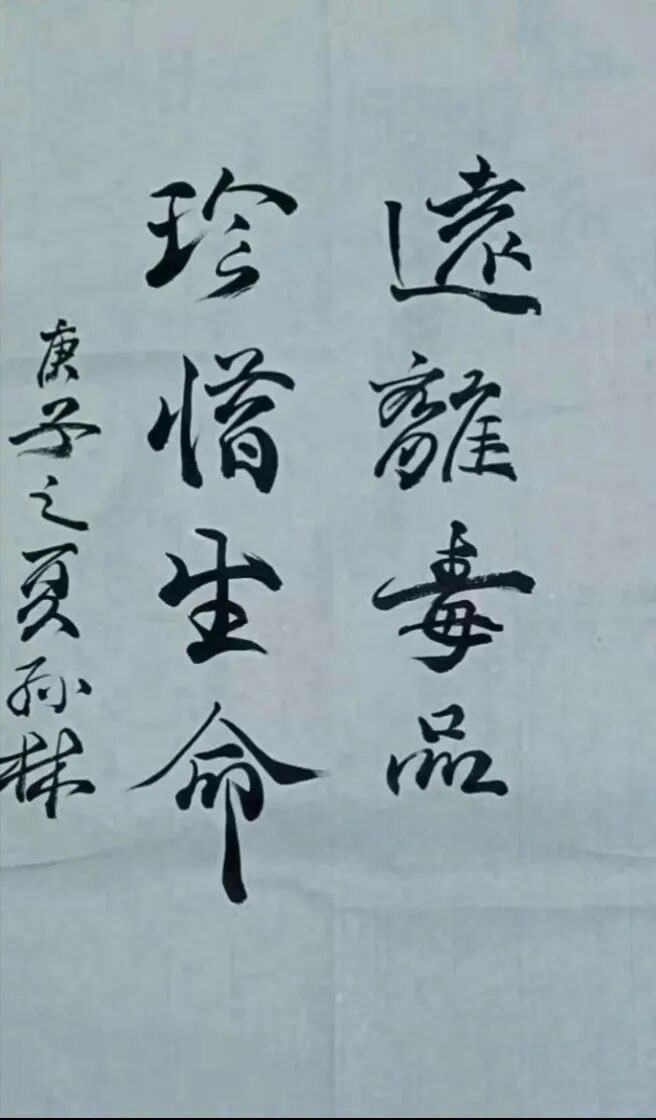 遠離毒品
珍惜生命
庚子之夏孙林